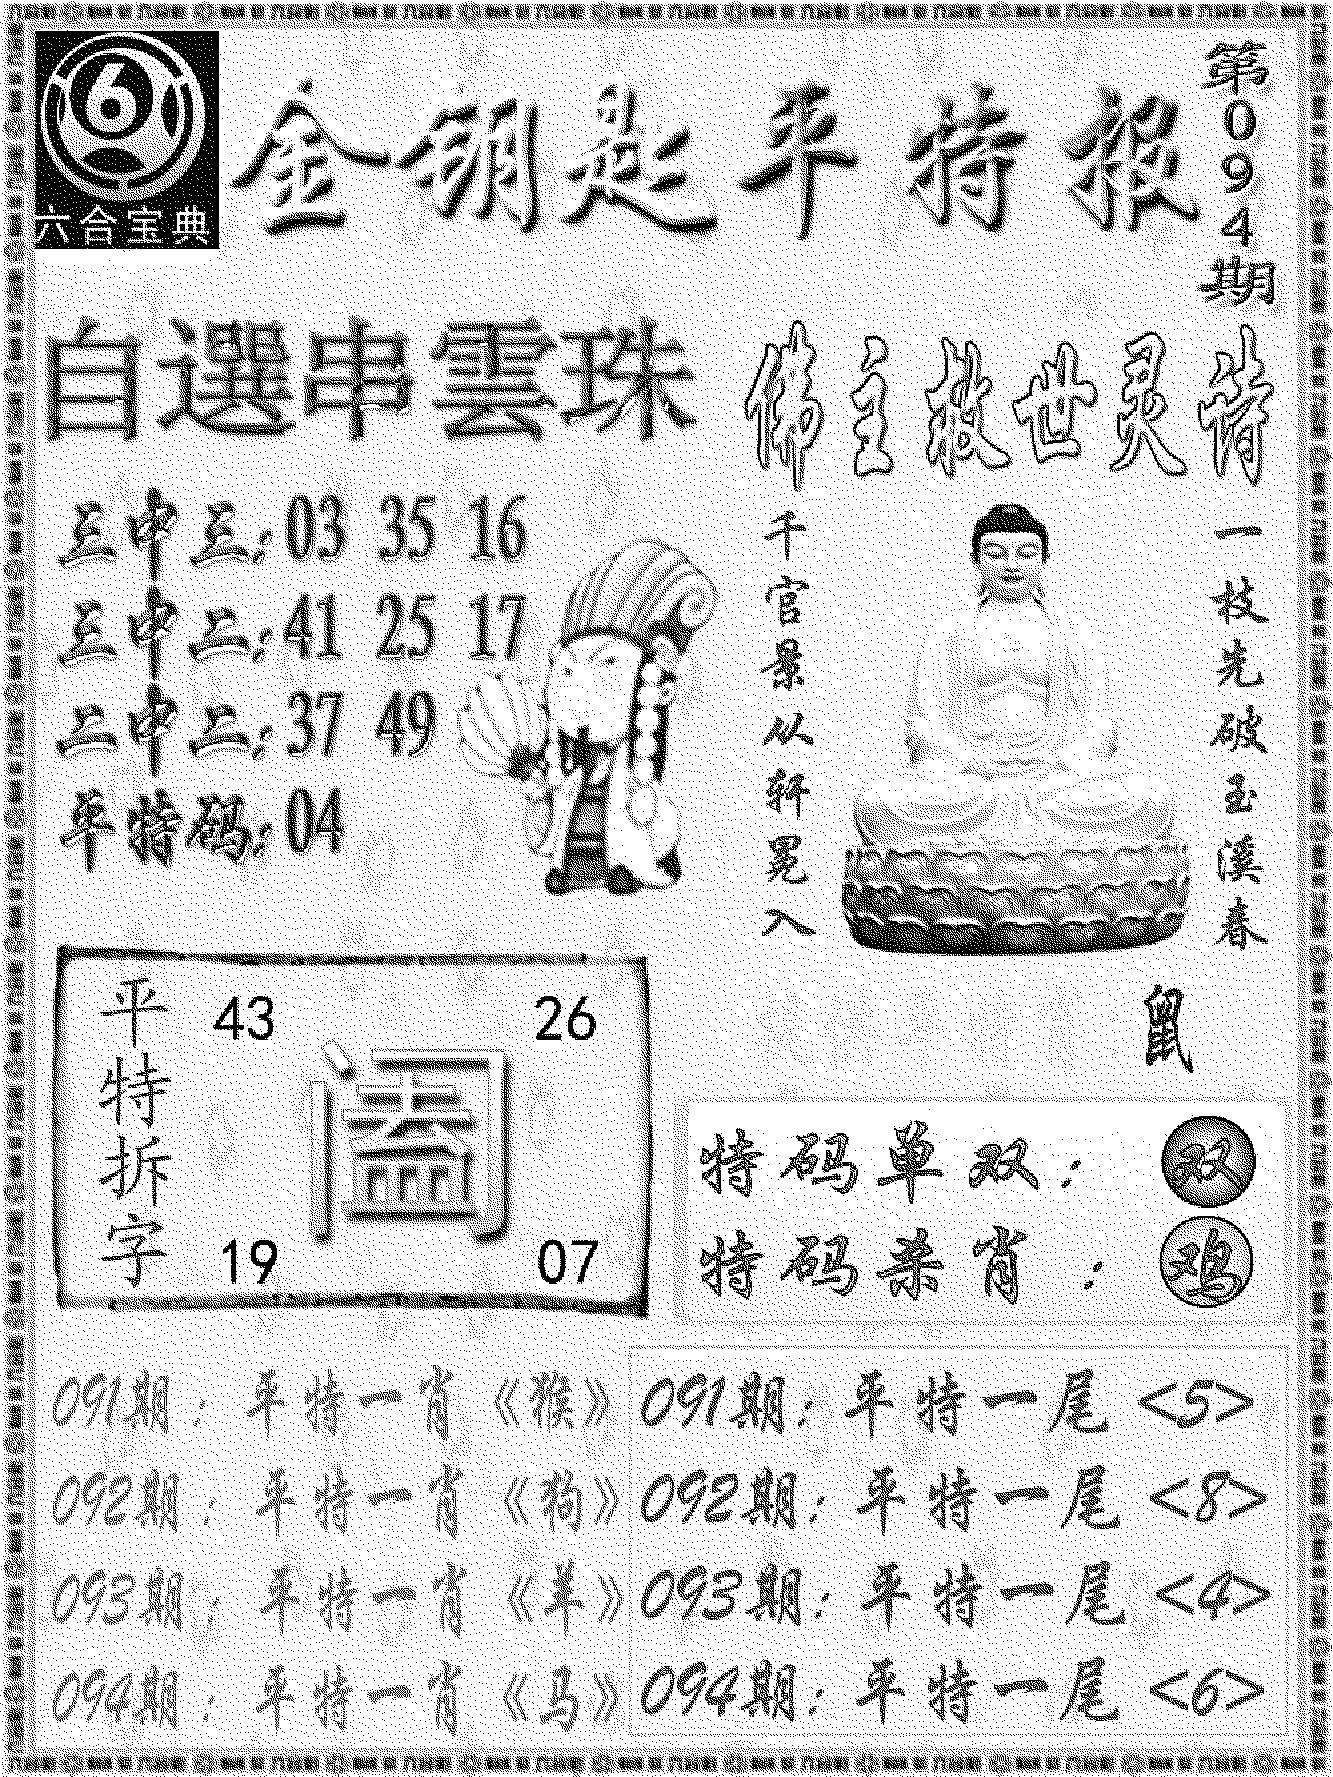 六合宝典
金钥匙平特报
第094期
自選串雲珠
三中三：03 35 16
三中二：41 25 17
二中二：37 49
平特码：04
佛主救世灵诗
一枝先破玉溪春
千官景从轩冕入
鼠
平特拆字
43 26
阖
19 07
特码单双：双
特码杀肖：鸡
091期：平特一肖《猴》
092期：平特一肖《狗》
093期：平特一肖《羊》
094期：平特一肖《马》
091期：平特一尾<5>
092期：平特一尾<8>
093期：平特一尾<4>
094期：平特一尾<6>